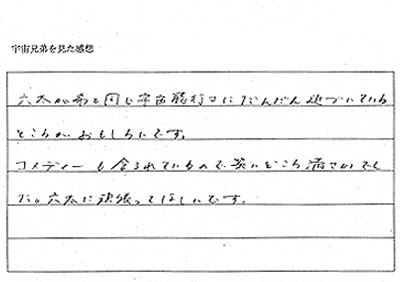 宇宙兄弟を見た感想
六太が弟と同じ宇宙飛行士にだんだん近づいている
ところがおもしろいです。
コメディーも含まれているので笑いどころ満さいでし
た。六太に頑張ってほしいです。